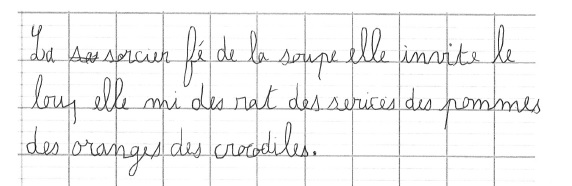 La sorcier fé de la soupe elle invite le
loup elle mi des rat des serices des pommes
des oranges des crocodiles.